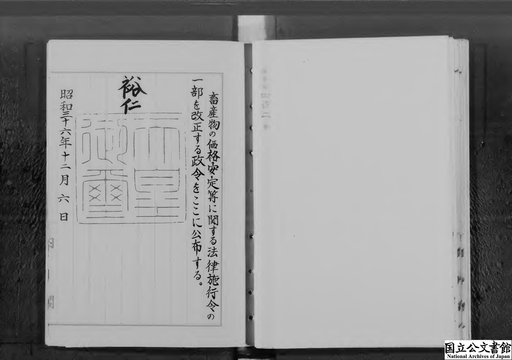 畜産物の価格安定等に関する法律施行令の
一部を改正する政令をここに公布する。
裕仁
天皇
御璽
昭和三十六年十二月六日
国立公文書館
National Archives of Japan